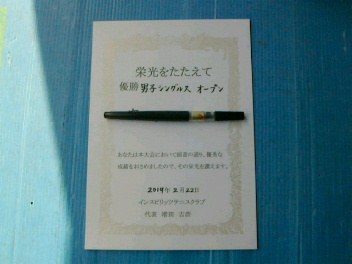 栄光をたたえて
優勝 男子シングルス オープン
あなたは本大会において頭書の通り、優秀な
成績をおさめましたので、その栄光を讃えます。
2019年2月22日
インスピリッツテニスクラブ
代表 増田 吉彦